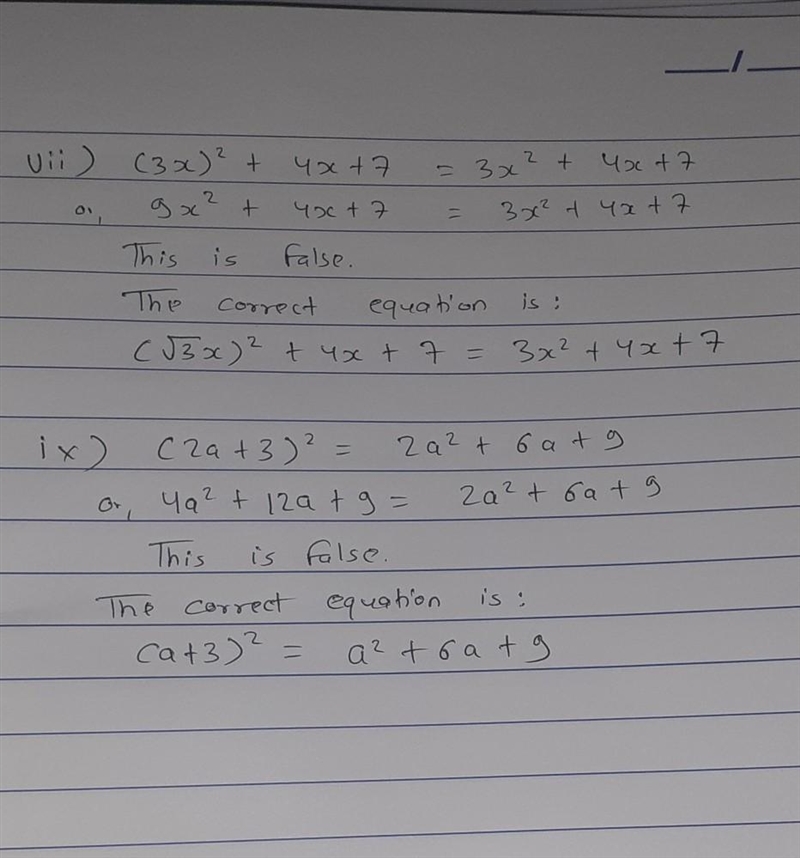 __/__
vii) (3x)² + 4x+7 = 3x² + 4x+7
or, 9x² + 4x+7 = 3x² + 4x+7
This is false.
The correct equation is:
(√3x)² + 4x + 7 = 3x² + 4x + 7
ix) (2a+3)² = 2a² + 6a + 9
Or, 4a² + 12a + 9 = 2a² + 6a + 9
This is false.
The correct equation is:
(a+3)² = a² + 6a + 9